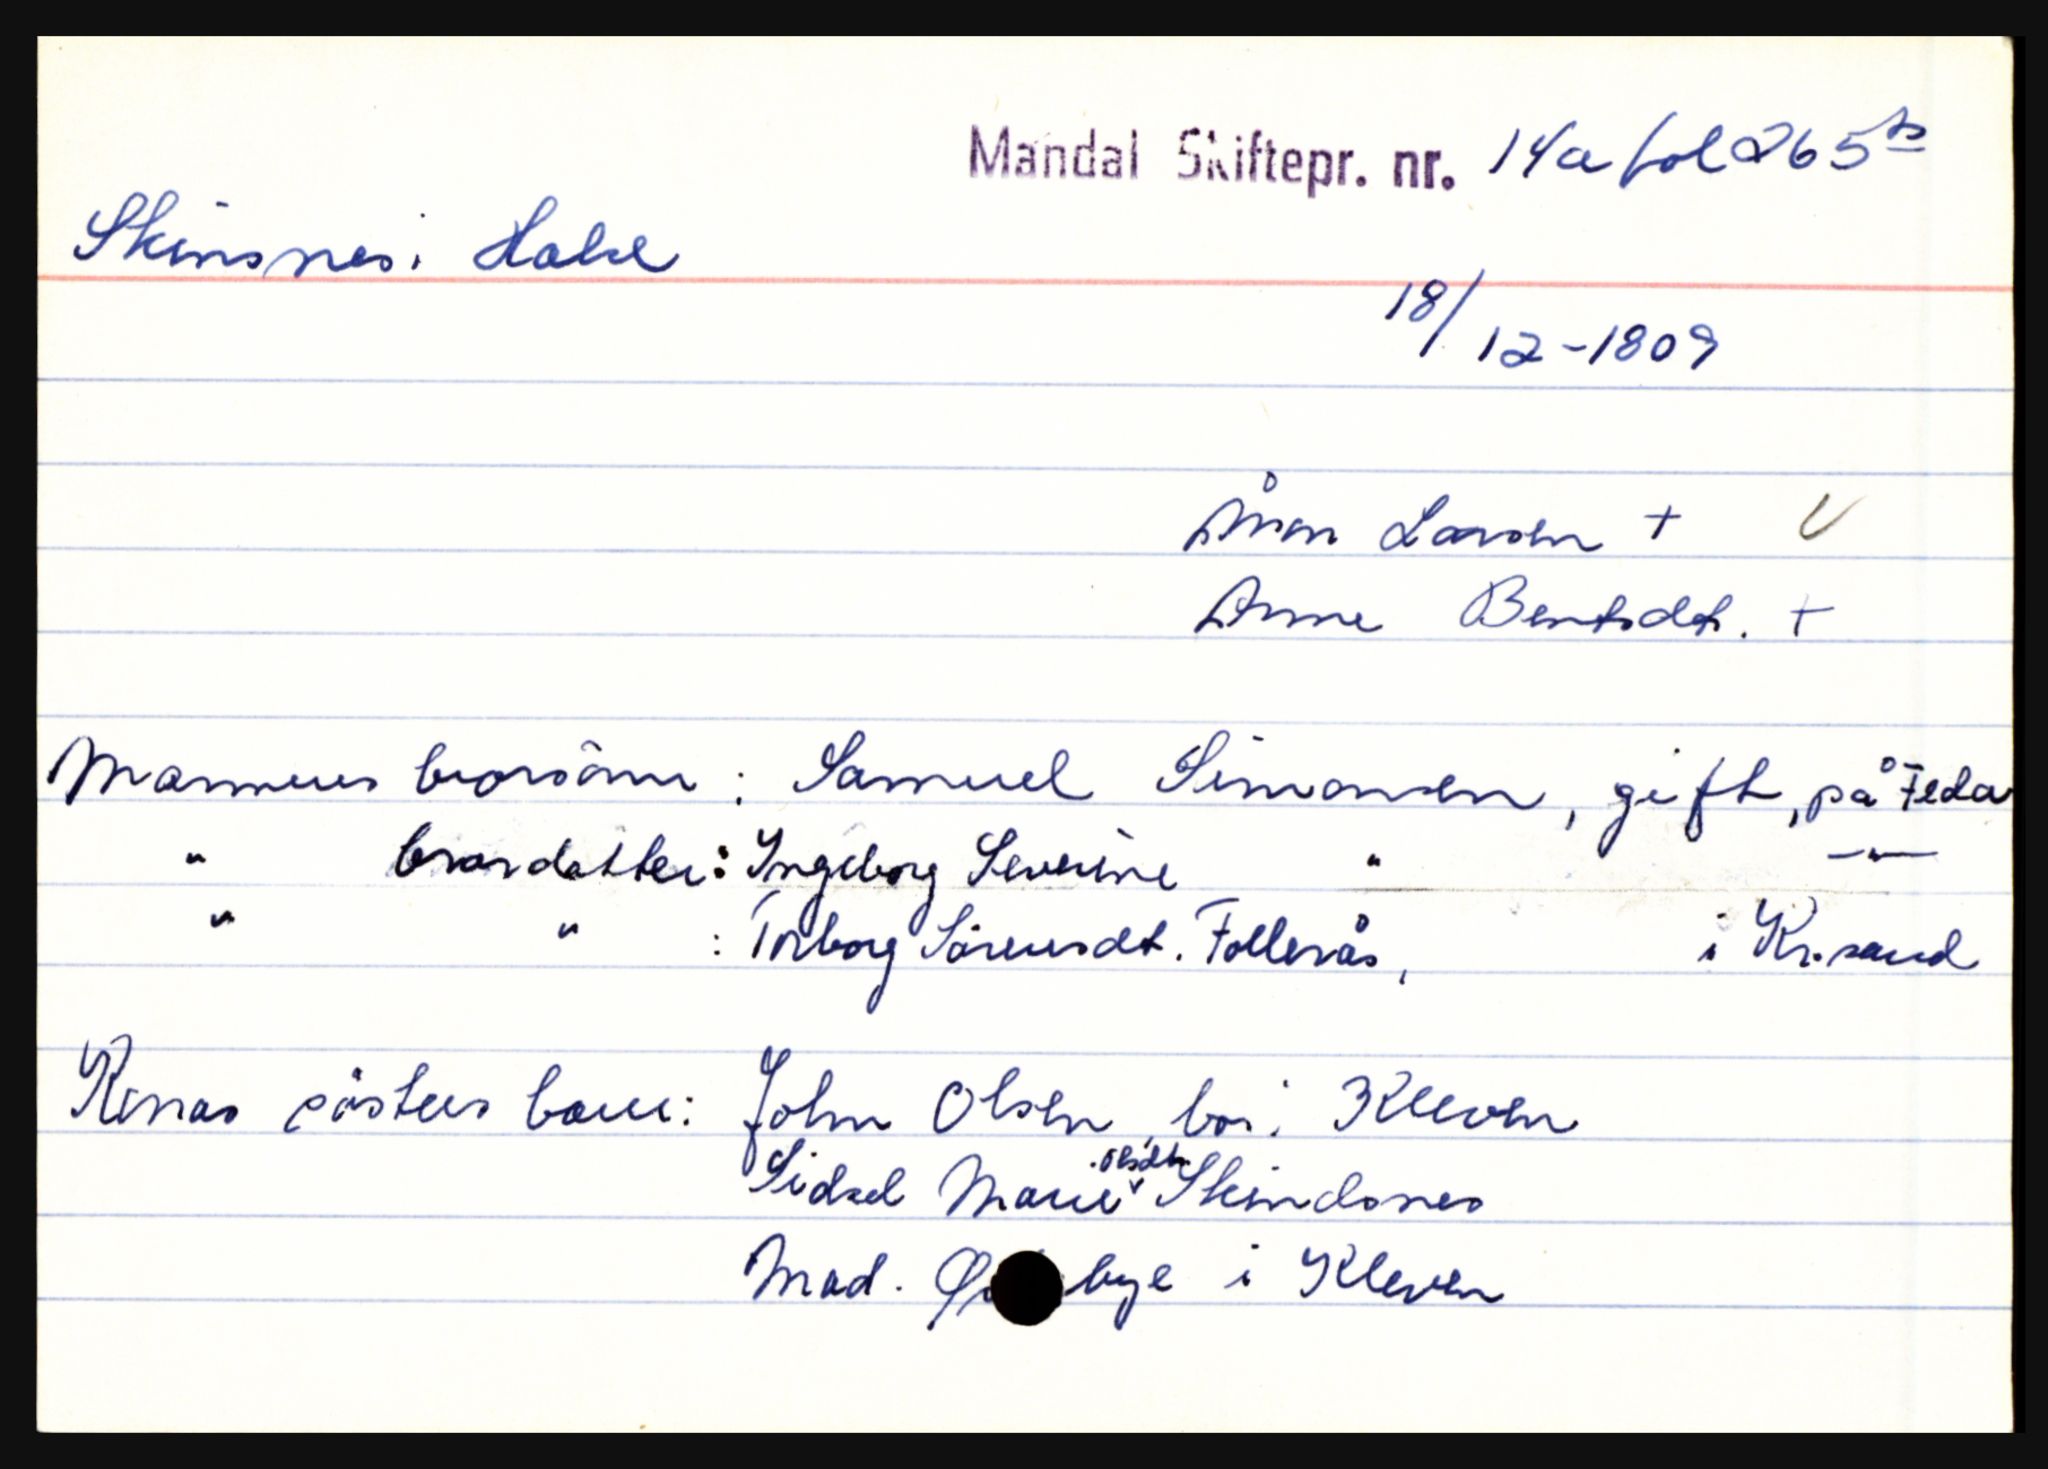 Mandal Skiftepr. nr. 14a fol 265 b
Skinsnes i Halse
18/12-1809
Ånon Larsen +
Anne Bentsdt. +
Mannens brorsönn : Samuel Simonsen, gift, på Feda
" brordatter : Ingeborg Severine " —"—
" " : Torborg Sörensdt. Follerås, i Kr.sand
Konas sösters barn : John Olsen, bor i Kleven
Sidsel Marie Olsdt. Skindsnes
Mad. i Kleven